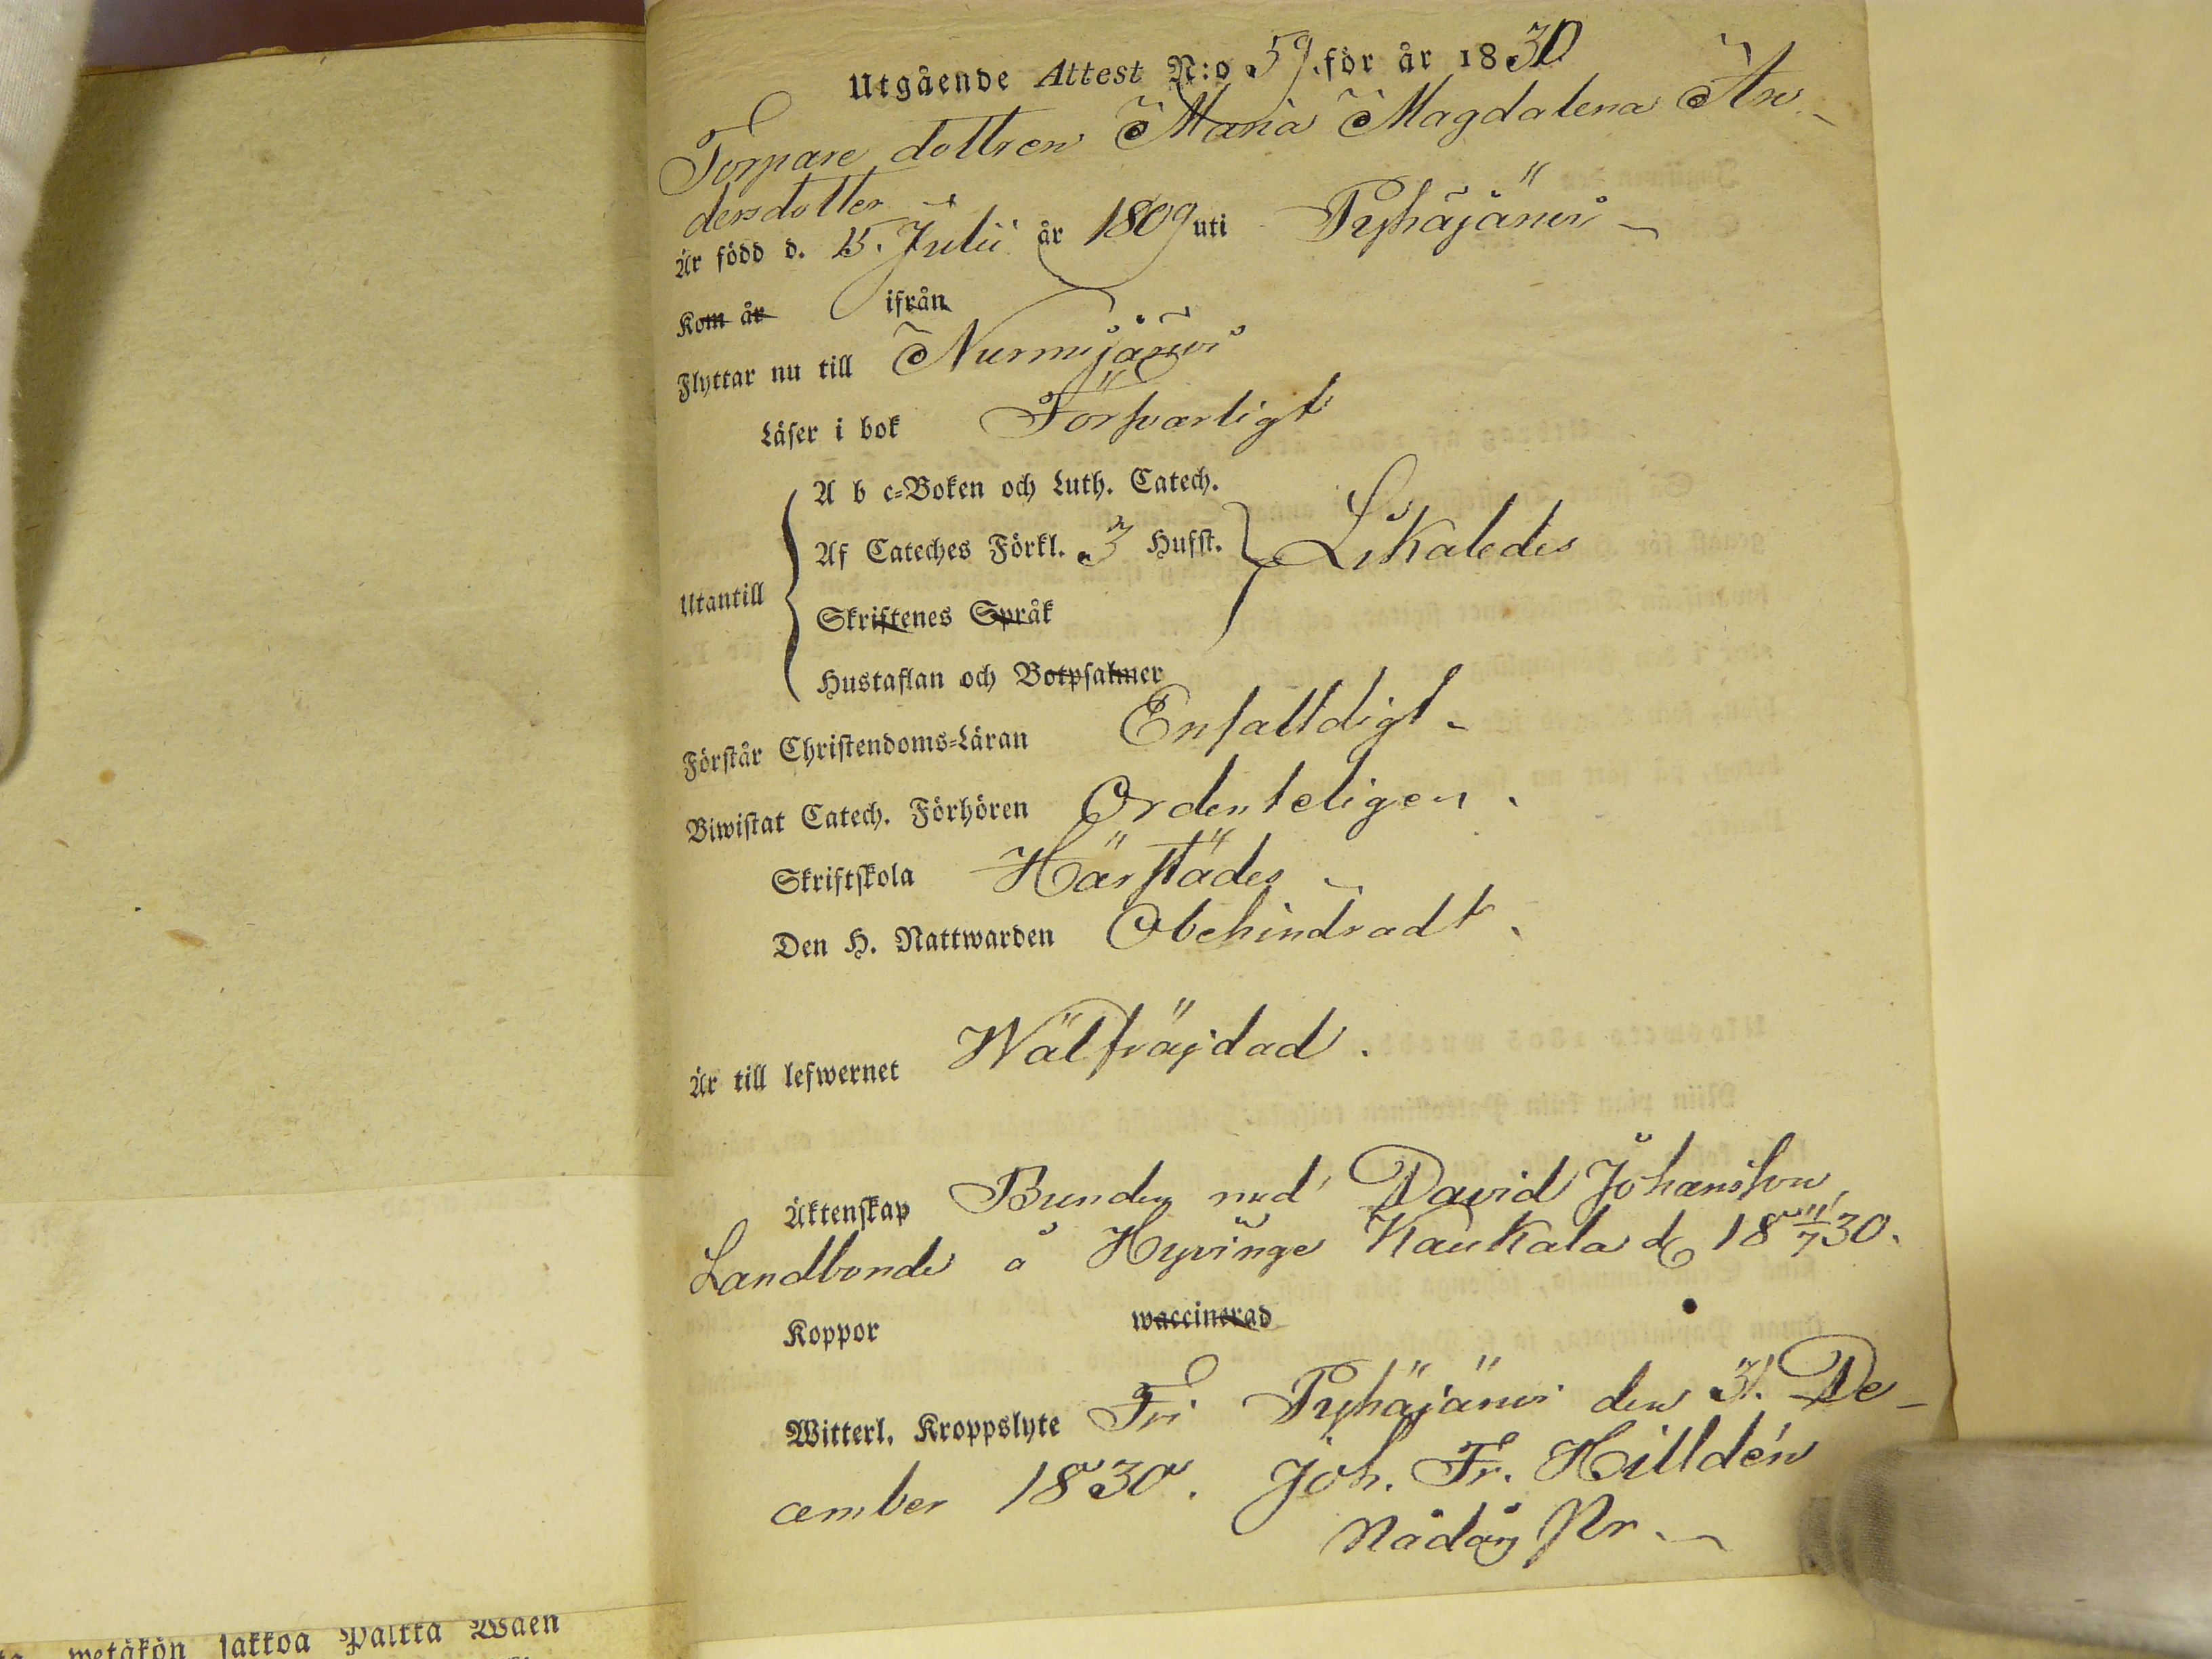 Utgående Attest N:o 59. för år 1830
Torpare dottren Maria Magdalena An-
dersdotter
Är född d. 15. Julii år 1809 uti Pyhäjärvi
Kom år ifrån
Flyttar nu till Nurmijärvi
Läser i bok Försvarligt
Utantill
A b c-Boken och Luth. Catech.
Af Cateches Förkl. 3 Hufst. Likaledes
Skriftenes Språk
Hustaflan och Botpsalmer
Förstår Christendoms-Läran Enfalldigt
Biwistat Catech. Förhören Ordenteligen.
Skriftskola Härstädes
Den H. Nattwarden Obehindradt.
Är till lefwernet Wälfräjdad.
Äktenskap Bunden med David Johansson
Landbonde å Hyvinge Kaukala d 18 11/7 30.
Koppor waccinerad
Witterl. Kroppslyte Fri Pyhäjärvi den 31. De-
cember 1830. Joh. Fr. Hilldén
Nådår Pr.
wetäkön sakkoa Paltta Waen